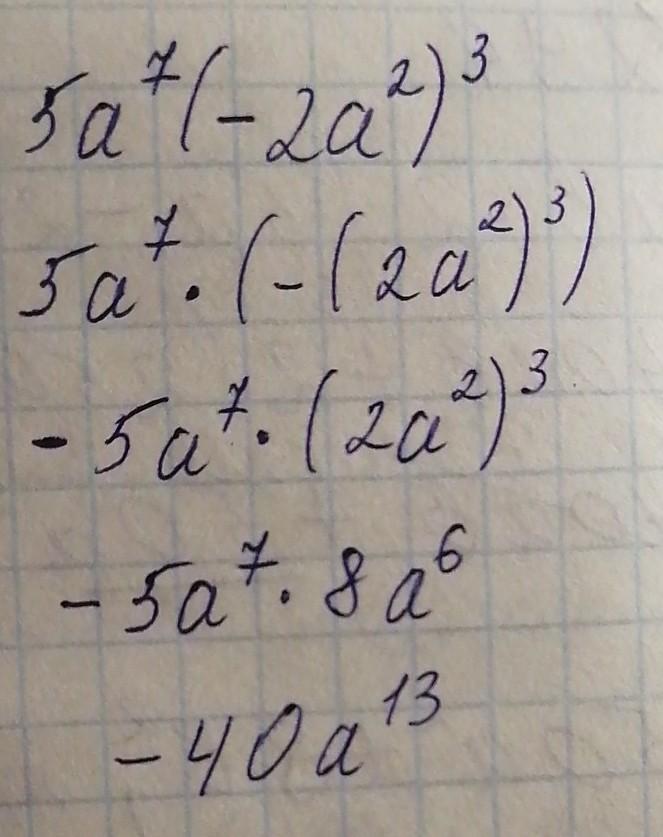 5a⁷(-2a²)³
5a⁷·(-(2a²)³)
-5a⁷·(2a²)³
-5a⁷·8a⁶
-40a¹³